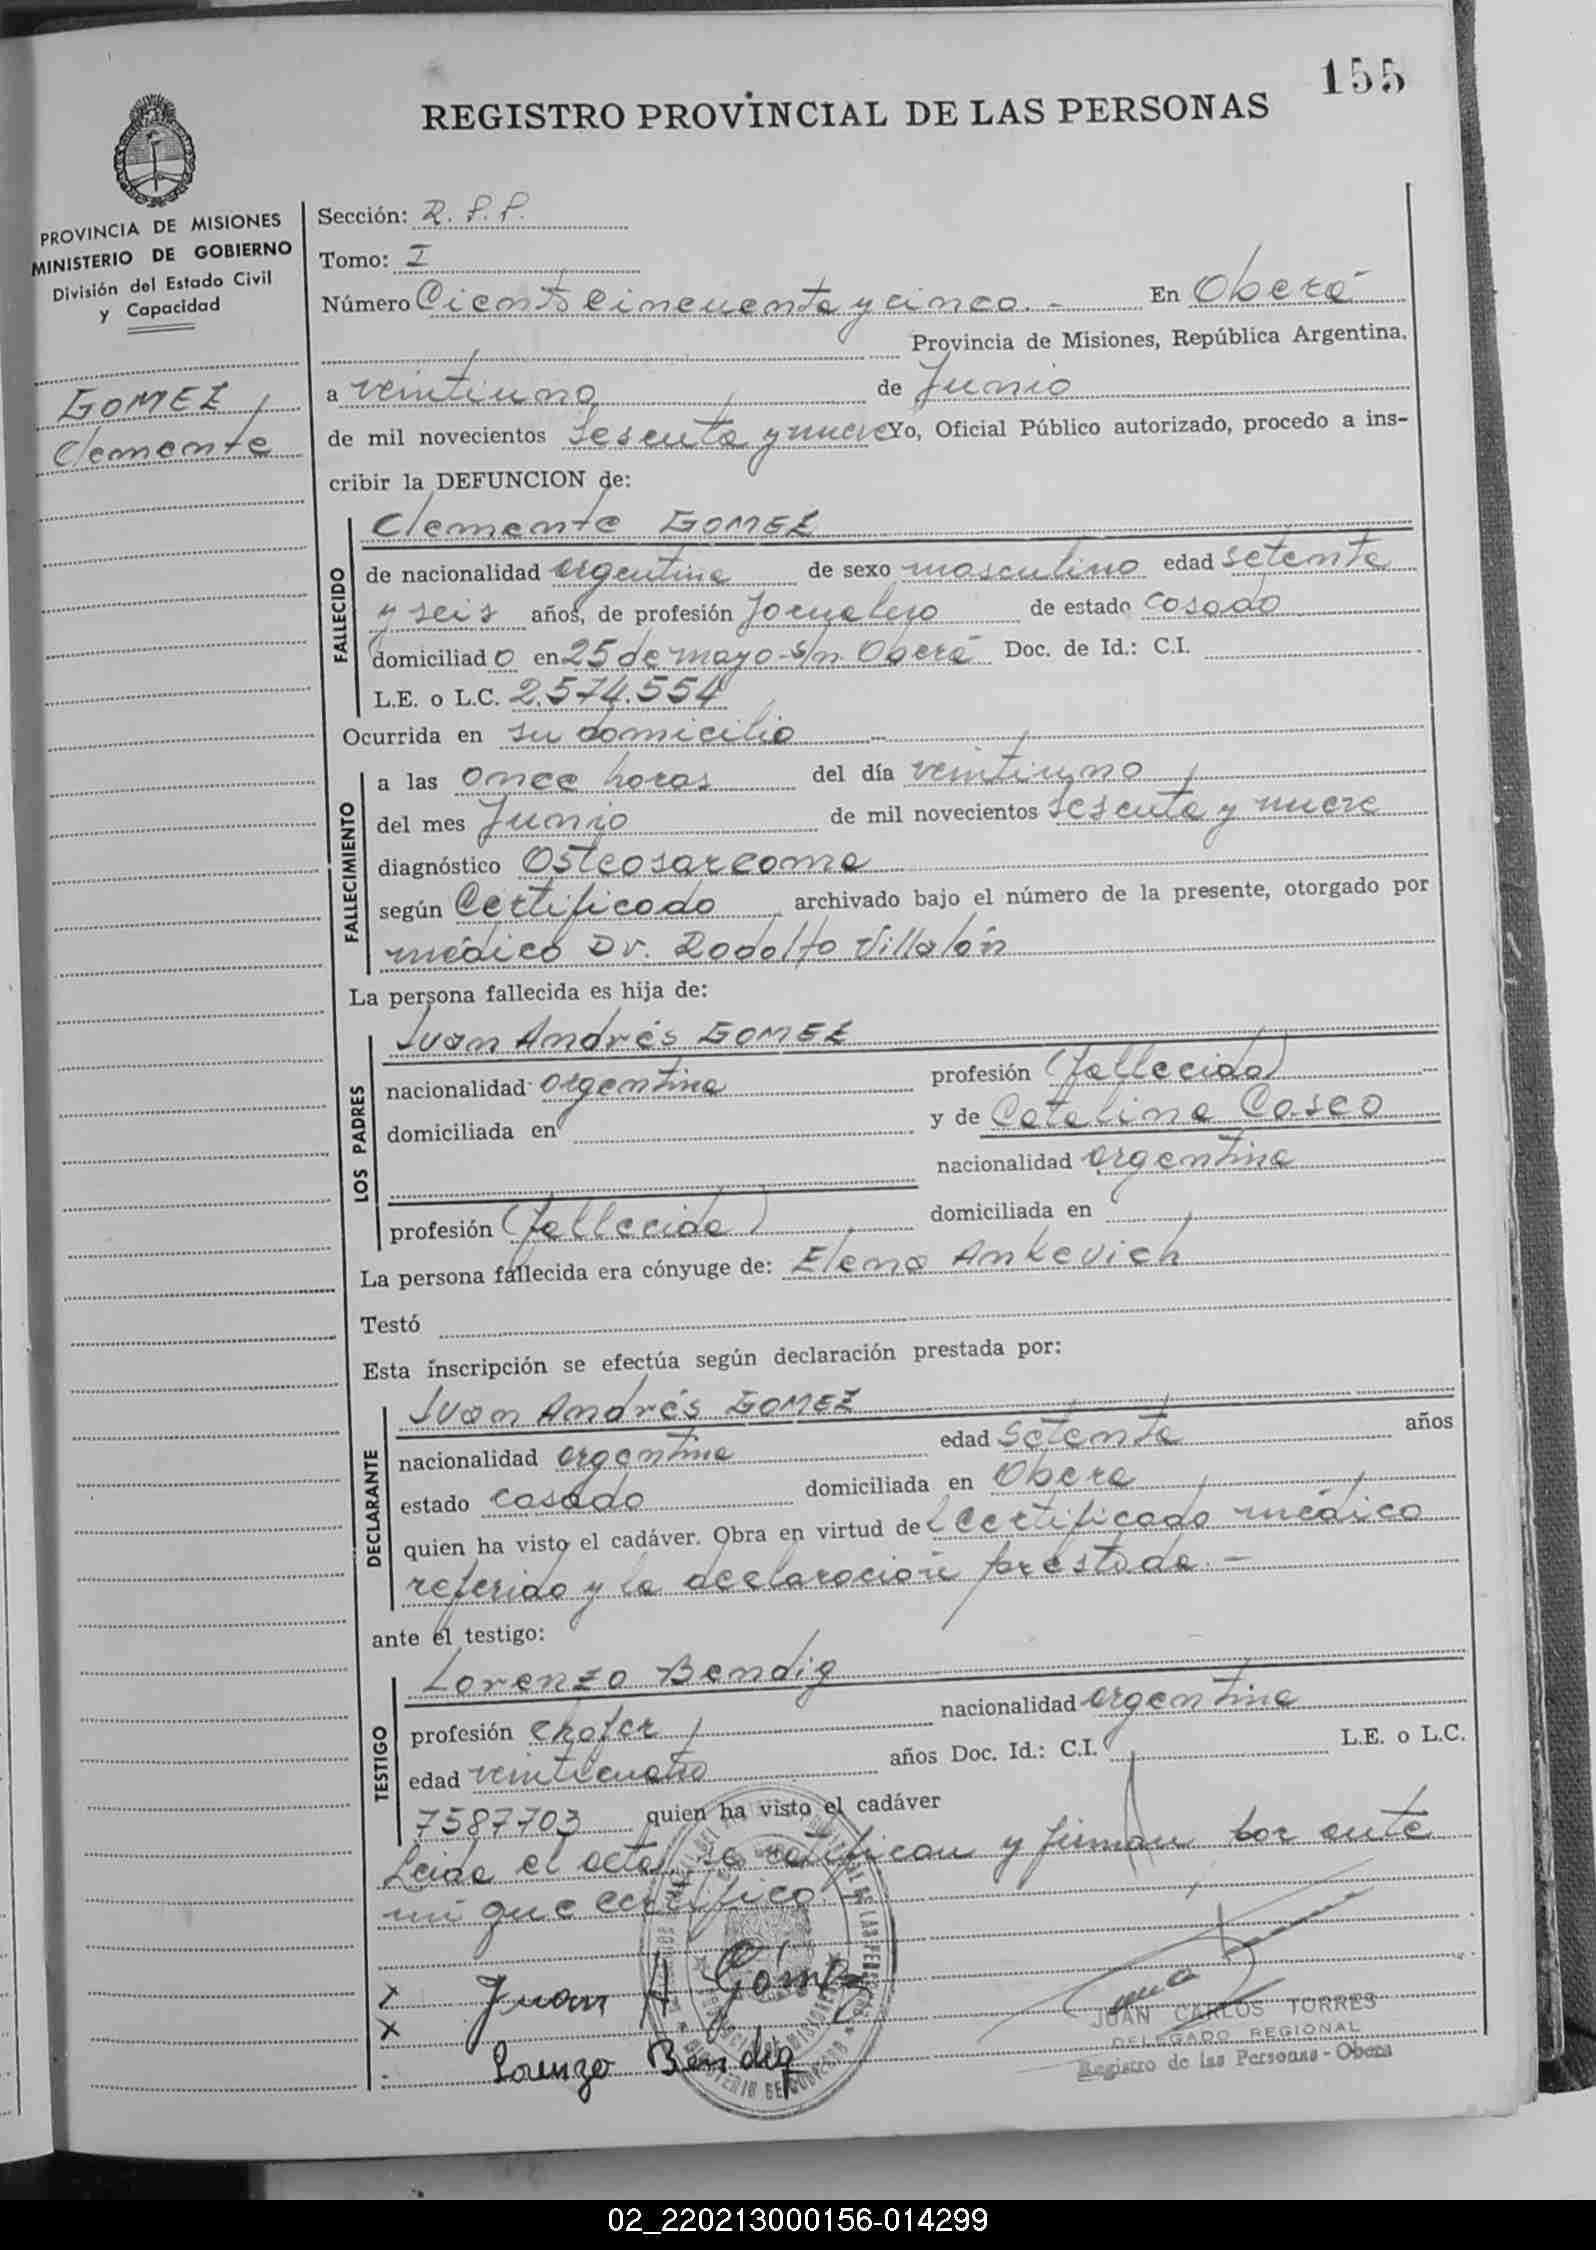 155
REGISTRO PROVINCIAL DE LAS PERSONAS
PROVINCIA DE MISIONES
MINISTERIO DE GOBIERNO
División del Estado Civil
y Capacidad
GOMEZ
Clemente
Sección: R. P. P.
Tomo: I
Número Ciento cincuenta y cinco. - En Oberá
Provincia de Misiones, República Argentina,
a veintiuno de Junio
de mil novecientos sesenta y nueve Yo, Oficial Público autorizado, procedo a ins-
cribir la DEFUNCION de:
FALLECIDO
Clemente GOMEZ
de nacionalidad argentina de sexo masculino edad setenta
y seis años, de profesión Jornalero de estado casado
domiciliado en 25 de mayo s/n. Oberá Doc. de Id.: C.I.
L.E. o L.C. 2.574.554
Ocurrida en su domicilio
FALLECIMIENTO
a las once horas del día veintiuno
del mes Junio de mil novecientos sesenta y nueve
diagnóstico Osteosarcoma
según Certificado archivado bajo el número de la presente, otorgado por
médico Dr. Rodolfo Villalón
La persona fallecida es hija de:
LOS PADRES
Juan Andrés GOMEZ
nacionalidad argentina profesión (fallecido)
domiciliada en y de Catalina Casco
nacionalidad argentina
profesión (fallecida) domiciliada en
La persona fallecida era cónyuge de: Elena Ankevich
Testó
Esta inscripción se efectúa según declaración prestada por:
DECLARANTE
Juan Andrés GOMEZ
nacionalidad argentina edad setenta años
estado casado domiciliada en Obera
quien ha visto el cadáver. Obra en virtud del Certificado médico
referido y la declaración prestada. -
ante el testigo:
TESTIGO
Lorenzo Bendig
profesión chofer nacionalidad argentina
edad veinticuatro años Doc. Id.: C.I. L.E. o L.C.
7587703 quien ha visto el cadáver
Leida el acta, la ratifican y firman por ante
mi que certifico.
x Juan A Gómez
x
Lorenzo Bendig
JUAN CARLOS TORRES
DELEGADO REGIONAL
Registro de las Personas - Obera
02_220213000156-014299